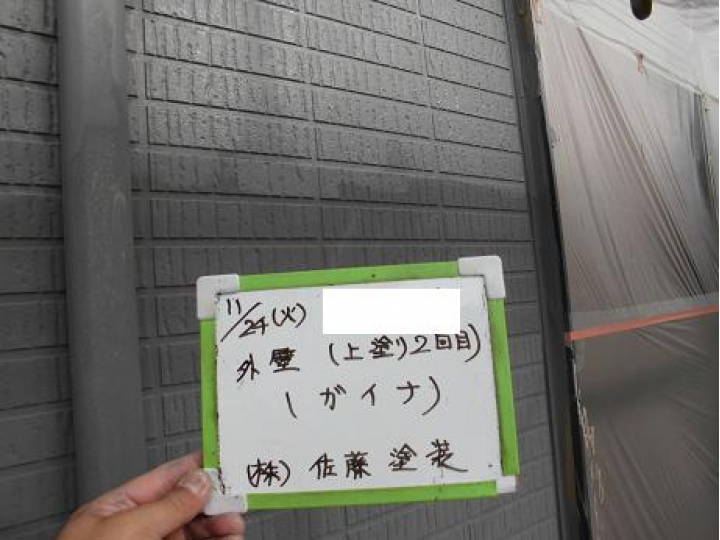 11/24(火)
外壁 (上塗り2回目)
(ガイナ)
(株) 佐藤塗装